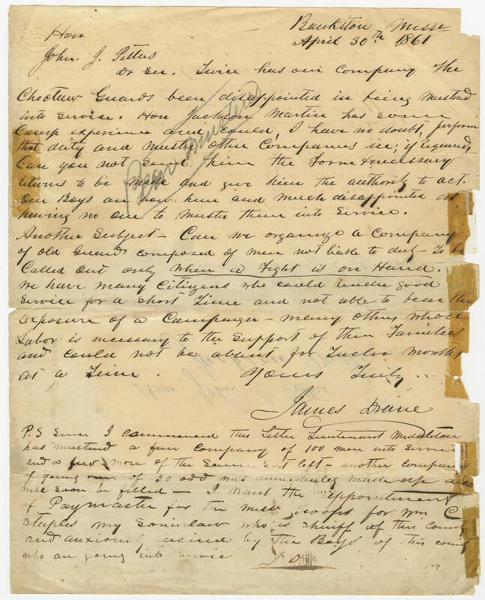 Bankston Missi
April 30th 1861
Hon
John. J. Pettus
Dr Sir. Twice has our Company The
Choctaw Guards been disappointed in being Mustered
into Service. Hon Jackson Martin has Some
Camp experience and could, I have no doubt, perform
that duty and Muster other Companies in; if required
Can you not Send him the Form & necessary
returns to be made and give him the authority to act.
Our Boys are now here and much disappointed at
having no one to Muster them into Service.
Another Subject - Can we organize a Company
of old Guards composed of men not liable to duty - to be
Called out only when a Fight is on Hand.
We have many Citizens who could render good
Service for a Short Time and not able to bear the
Exposure of a Campaign - many others whose
Labor is necessary to the Support of their Families
and could not be absent for Twelve Months
at a Time. Yours Truly
James Drane
P.S Since I commenced this Letter Lieutenant Middleton
has mustered a fine Company of 100 men into Service
and a few more of the Same Sort left - another company
of young men of 30 odd was immediately made up and
will Soon be filled - I want the appointment
of Paymaster for the Missi Troops for Wm C
Staples my Soninlaw who is Sheriff of this County
and anxiously desired by the Boys of this county
who are going into Service
J D